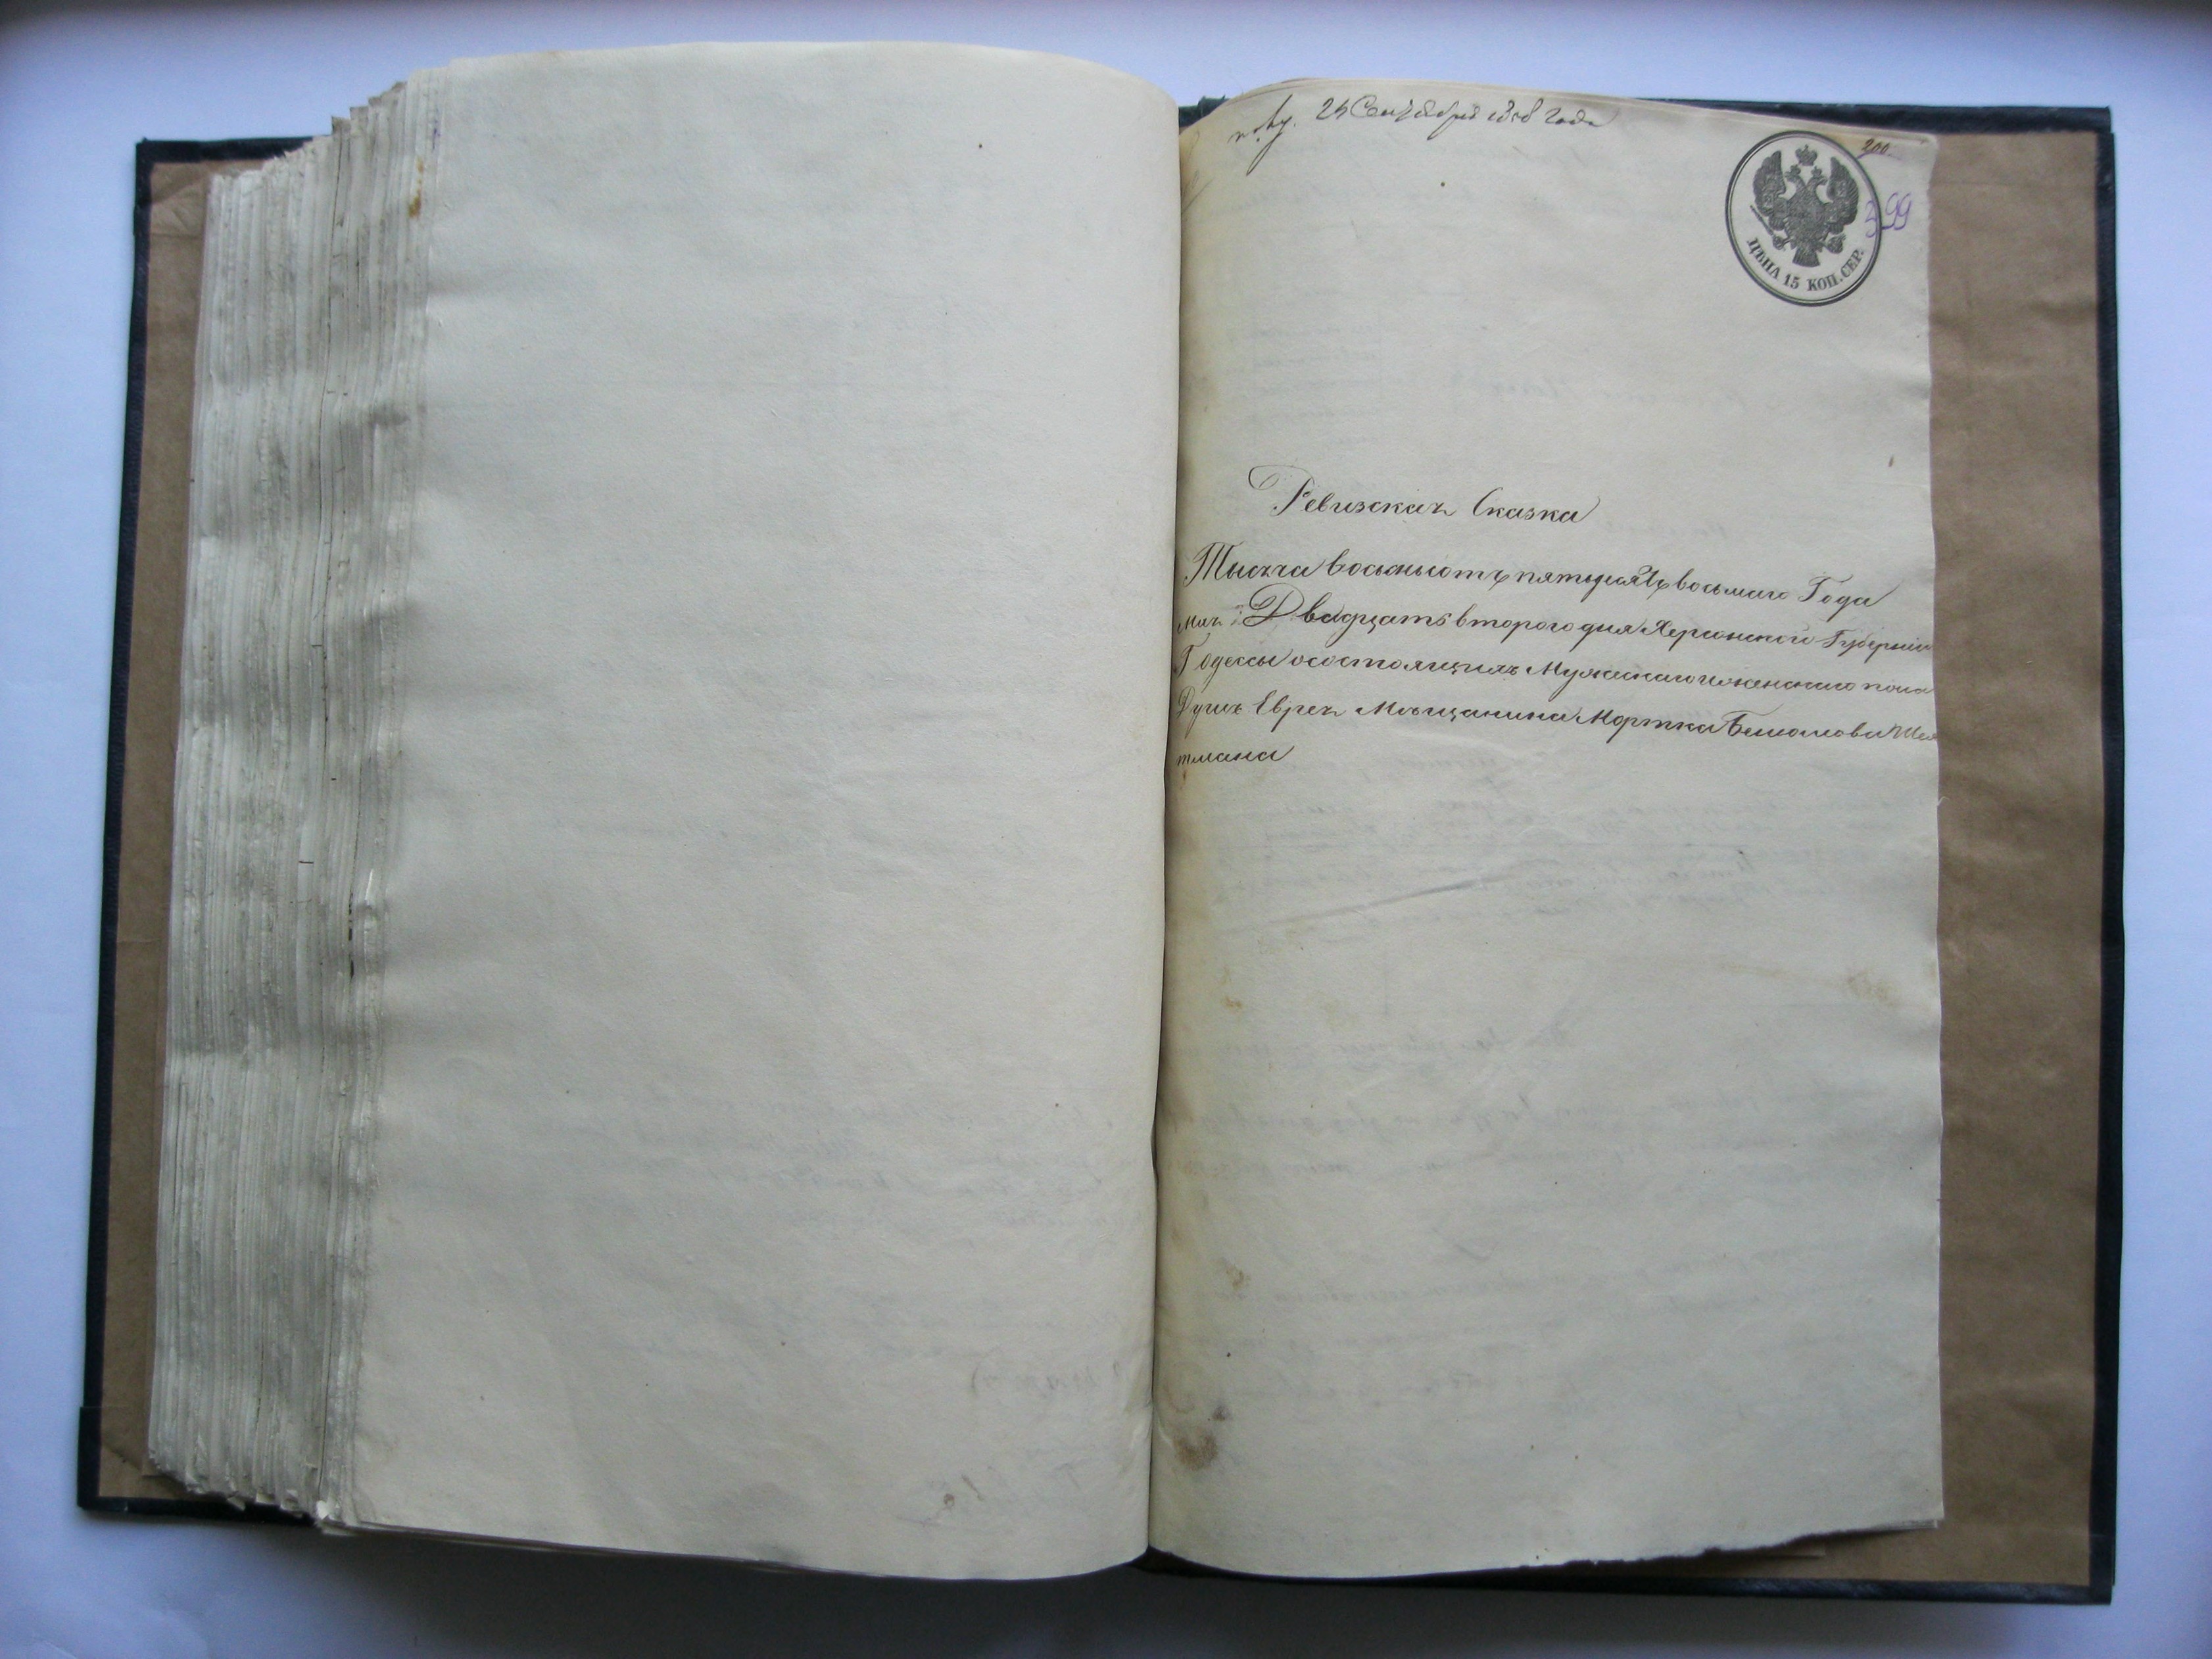 25 Сентября 1858 года
200
399
ЦѢНА 15 КОП. СЕР.
Ревизская Сказка
Тысяча восемьсотъ пятьдесятъ восьмаго Года
Мая Двадцать втораго дня Херсонской Губерніи
Г Одессы о состоящихъ Мужескаго и женскаго пола
Душъ Еврея Мѣщанина Мортка
тмана